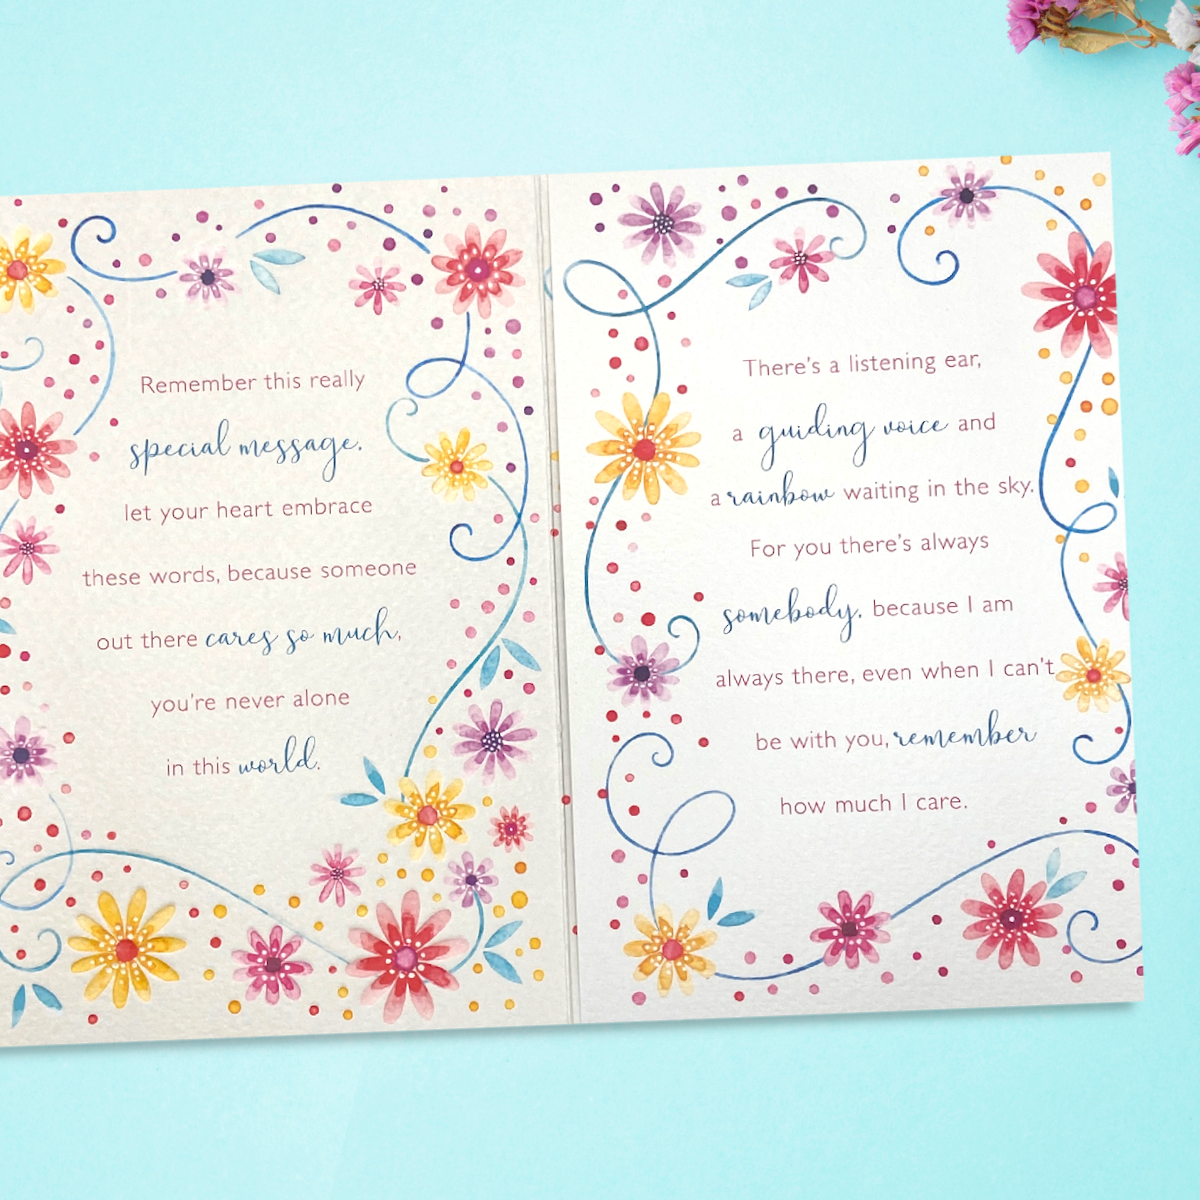 Remember this really
special message.
let your heart embrace
these words, because someone
out there cares so much,
you're never alone
in this world.
There's a listening ear,
a guiding voice and
a rainbow waiting in the sky.
For you there's always
somebody. because I am
always there, even when I can't
be with you, remember
how much I care.